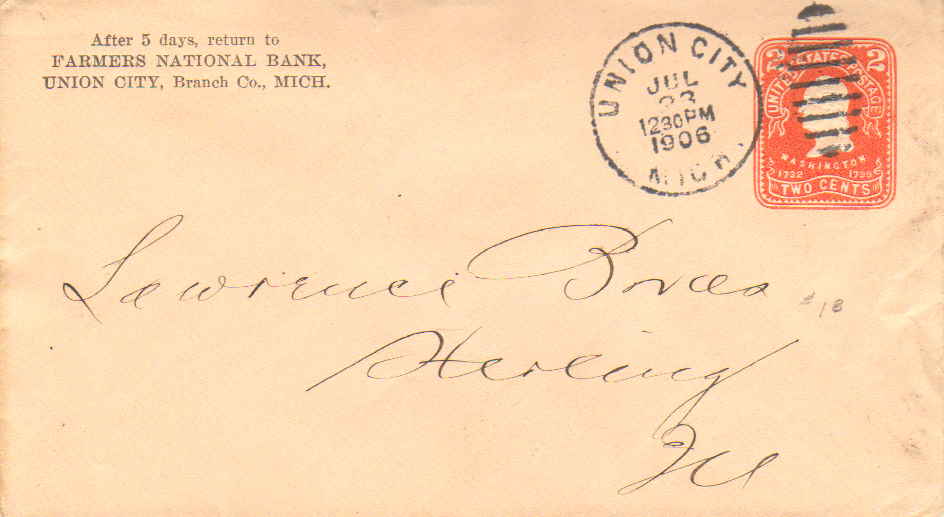 After 5 days, return to
FARMERS NATIONAL BANK,
UNION CITY, Branch Co., MICH.
UNION CITY
JUL
23
1230PM
1906
MICH.
2 UNITED STATES POSTAGE 2
WASHINGTON
1732 1799
TWO CENTS
Lawrence Bros
#18
Sterling
Ill